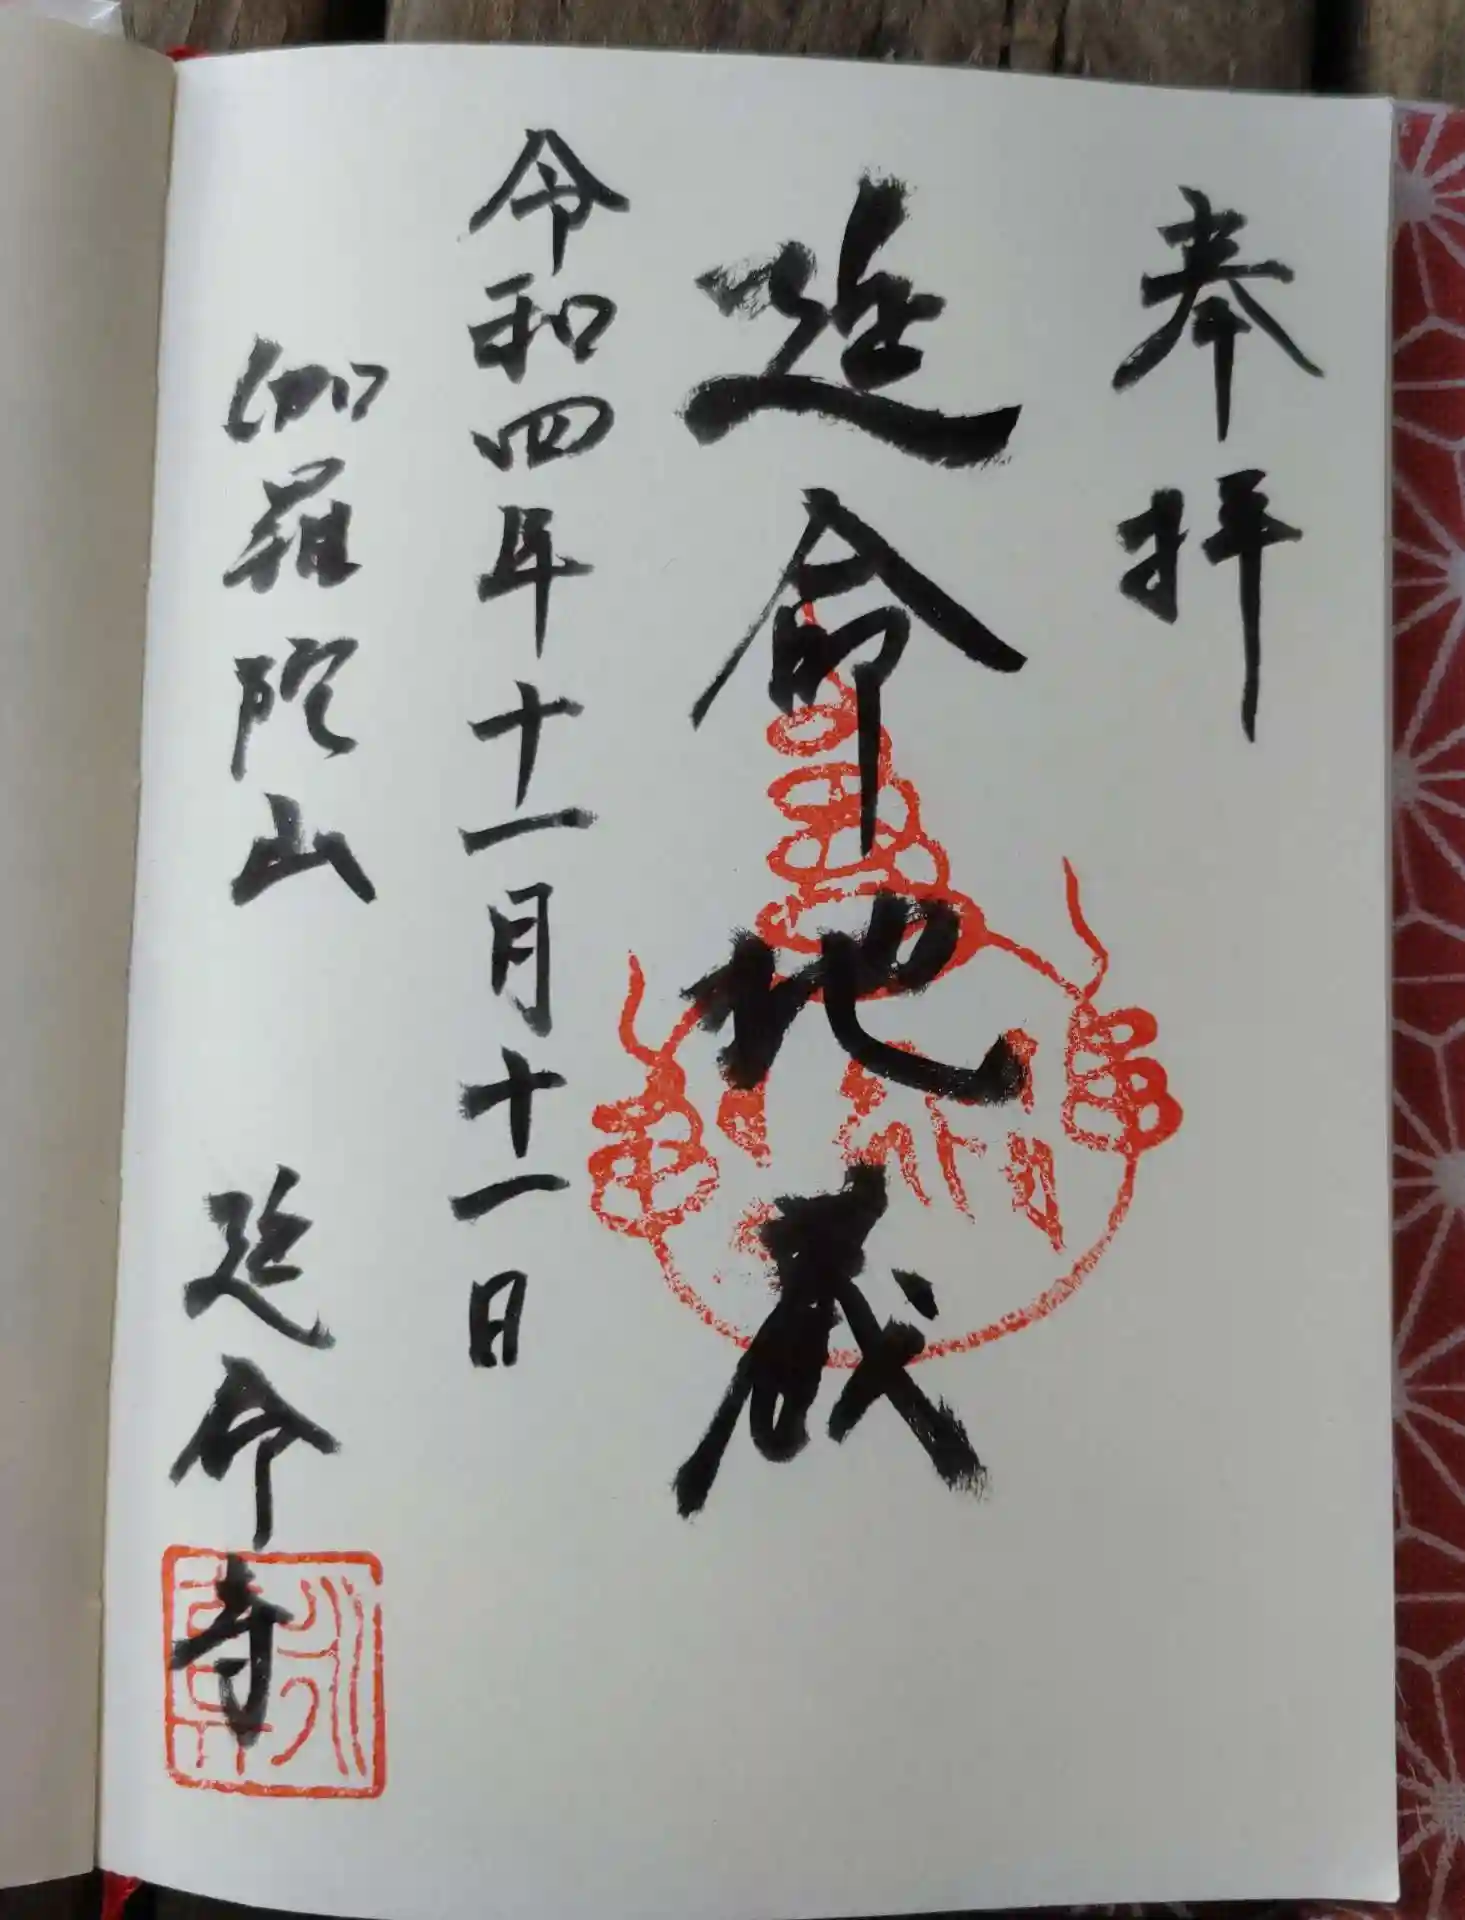 奉拝
延命地蔵
令和四年十一月十一日
伽羅陀山 延命寺